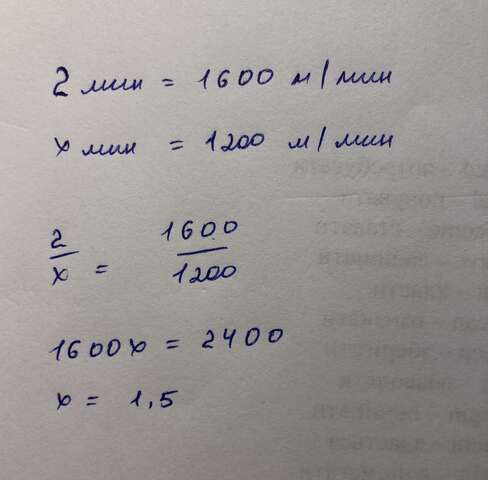 2 мин = 1600 м/мин
x мин = 1200 м/мин
2/x = 1600/1200
1600x = 2400
x = 1,5